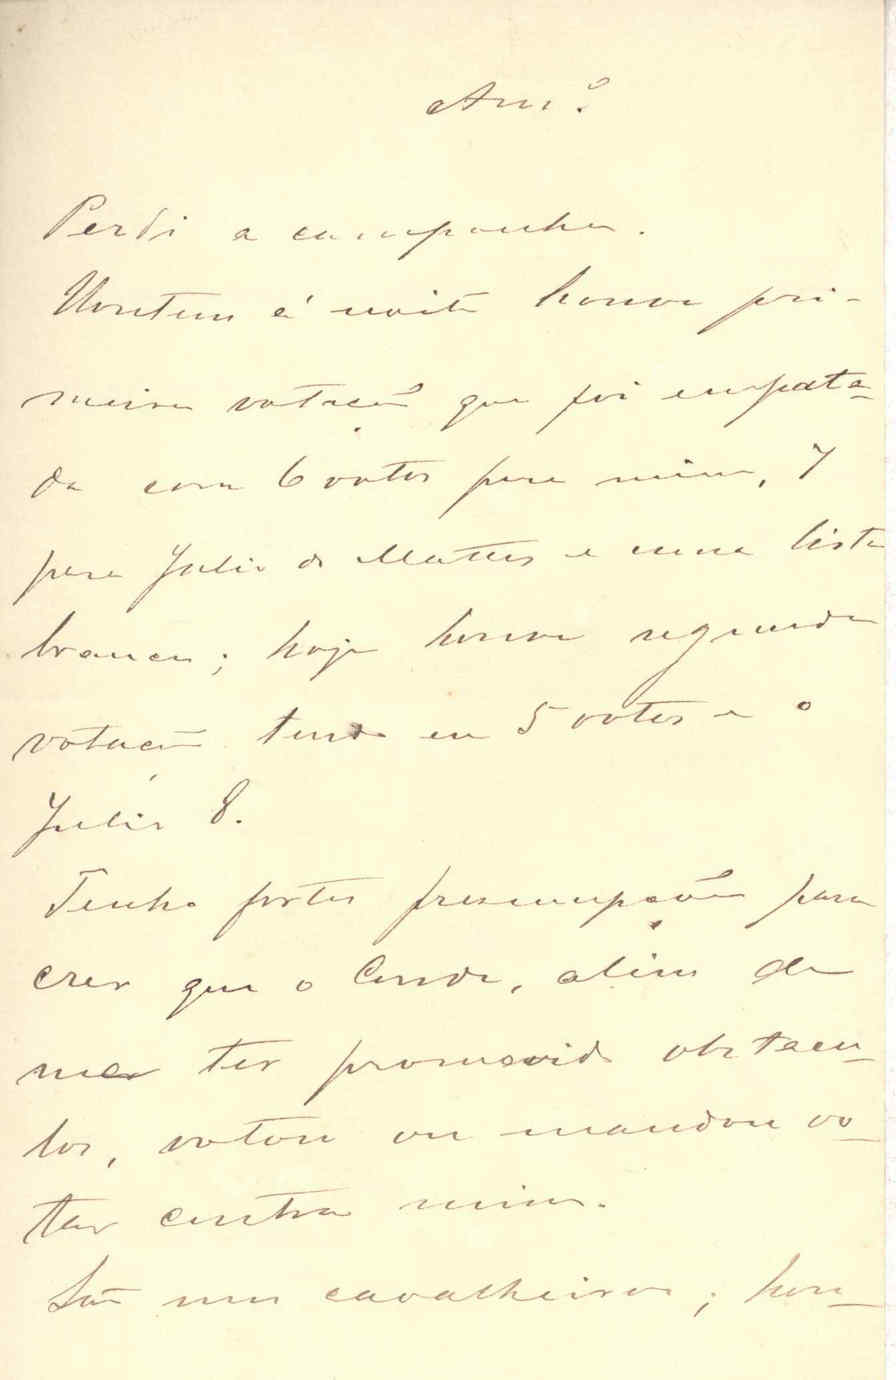 Am.º
Perdi a campanha.
Hontem á noite houve pri-
meira votação que foi empata-
da com 6 votos para mim, 7
para Julio de Mattos e uma lista
branca; hoje houve segunda
votação tendo eu 5 votos e o
Julio 8.
Tenho fortes presumpções para
crer que o Conde, alem de
me ter promovido obstacu-
los, votou ou mandou vo-
tar contra mim.
São uns cavalheiros; hon-